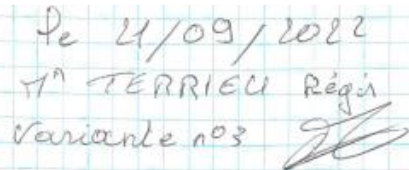 Le 21/09/2022
Mr TERRIEU Régis
Variante n°3